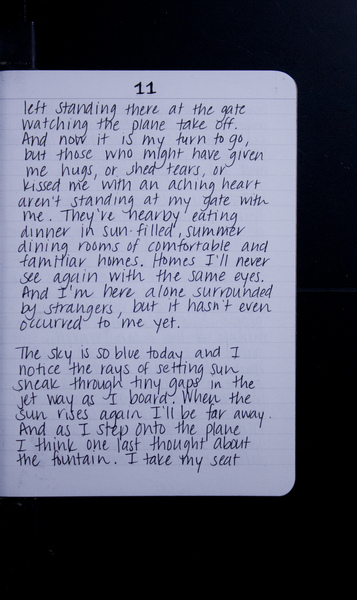 11
left standing there at the gate
watching the plane take off.
And now it is my turn to go,
but those who might have given
me hugs, or shed tears, or
kissed me with an aching heart
aren't standing at my gate with
me. They're nearby eating
dinner in sun-filled, summer
dining rooms of comfortable and
familiar homes. Homes I'll never
see again with the same eyes.
And I'm here alone surrounded
by strangers, but it hasn't even
occurred to me yet.
The sky is so blue today and I
notice the rays of setting sun
sneak through tiny gaps in the
jet way as I board. When the
sun rises again I'll be far away.
And as I step onto the plane
I think one last thought about
the fountain. I take my seat